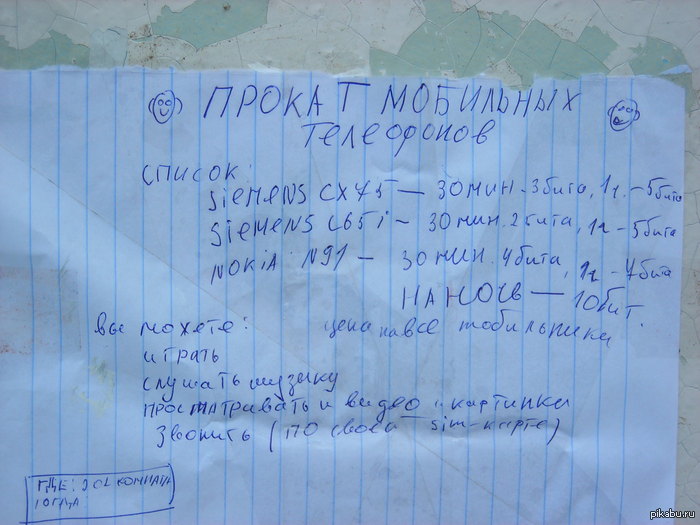 ПРОКАТ МОБИЛЬНЫХ
телефонов
список:
SiEMENS CX75 — 30 мин - 3 бита, 1ч. - 5 бита
SiEMENS C65i - 30 мин. 2 бита, 1ч - 5 бита
NOKiA N91 - 30 мин. 4 бита, 1ч - 7 бита
НА НОЧЬ — 10 бит.
вы можете: цена на все мобильники
играть
слушать музыку
просматривать и видео и картинки
звонить (по своей sim-карте)
ГДЕ: 202 КОМНАТА
pikabu.ru